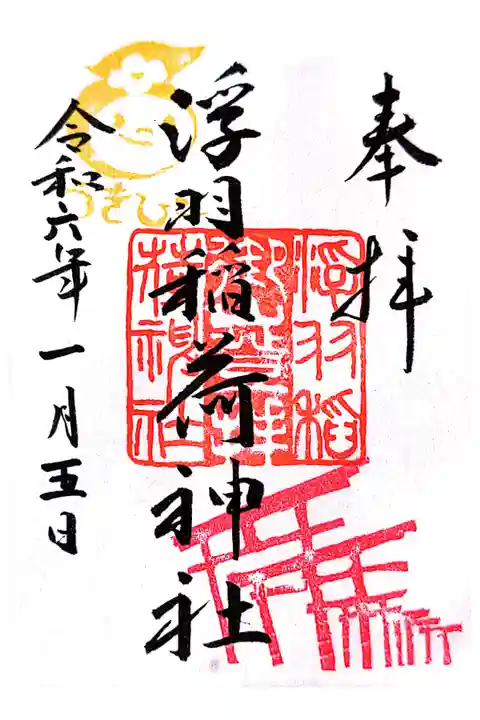 奉拝
浮羽稲荷神社
令和六年一月五日
浮羽稲
荷神社